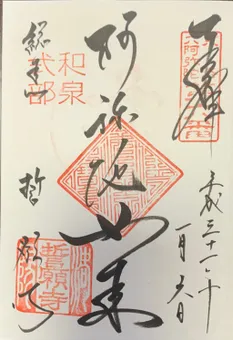 奉拝
平成三十一年
一月六日
阿弥陀如来
和泉
式部
総本山
誓願寺
誓願寺